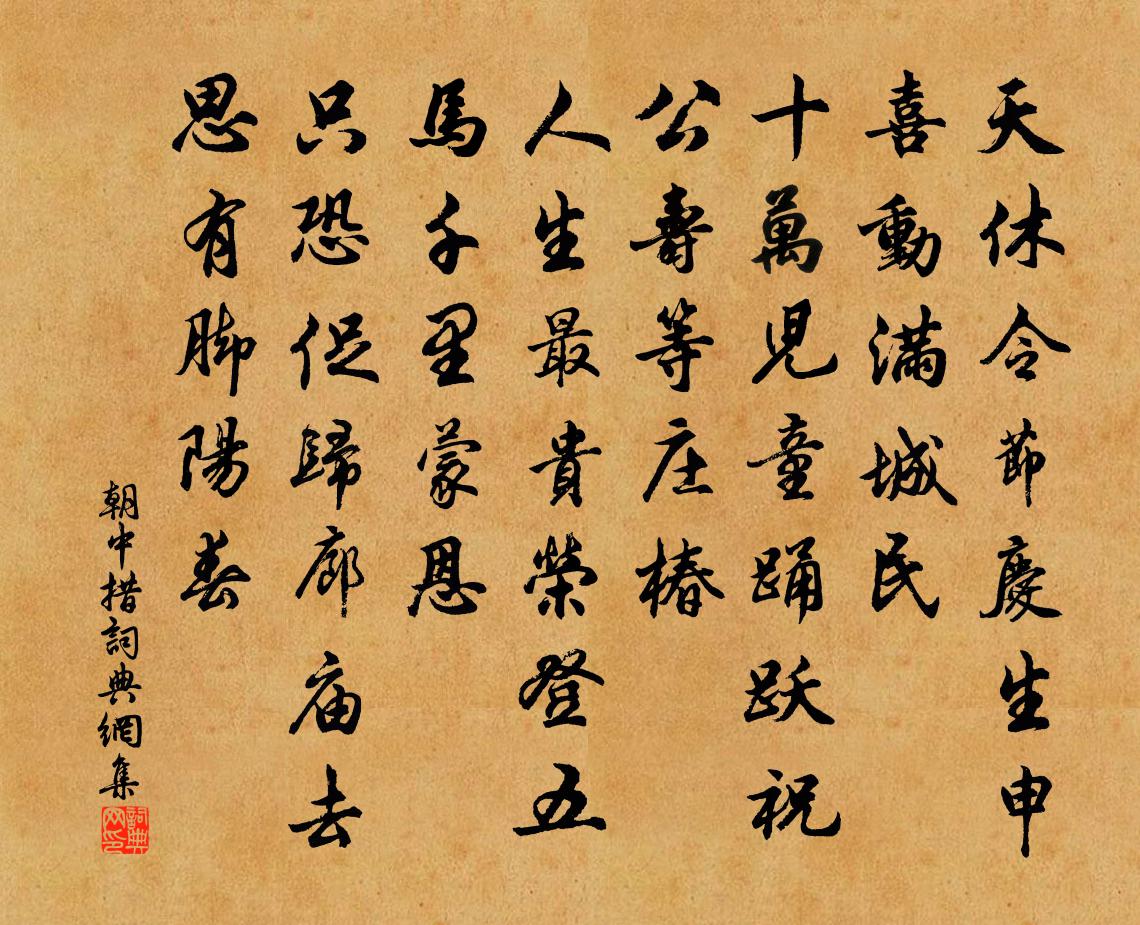 天休令節慶生申
喜動滿城民
十萬児童踊跃祝
公壽等庄椿
人生最貴榮登五
馬千里蒙恩
只恐促歸廊庙去
思有脚陽春
朝中措詞典網集
詞典网印